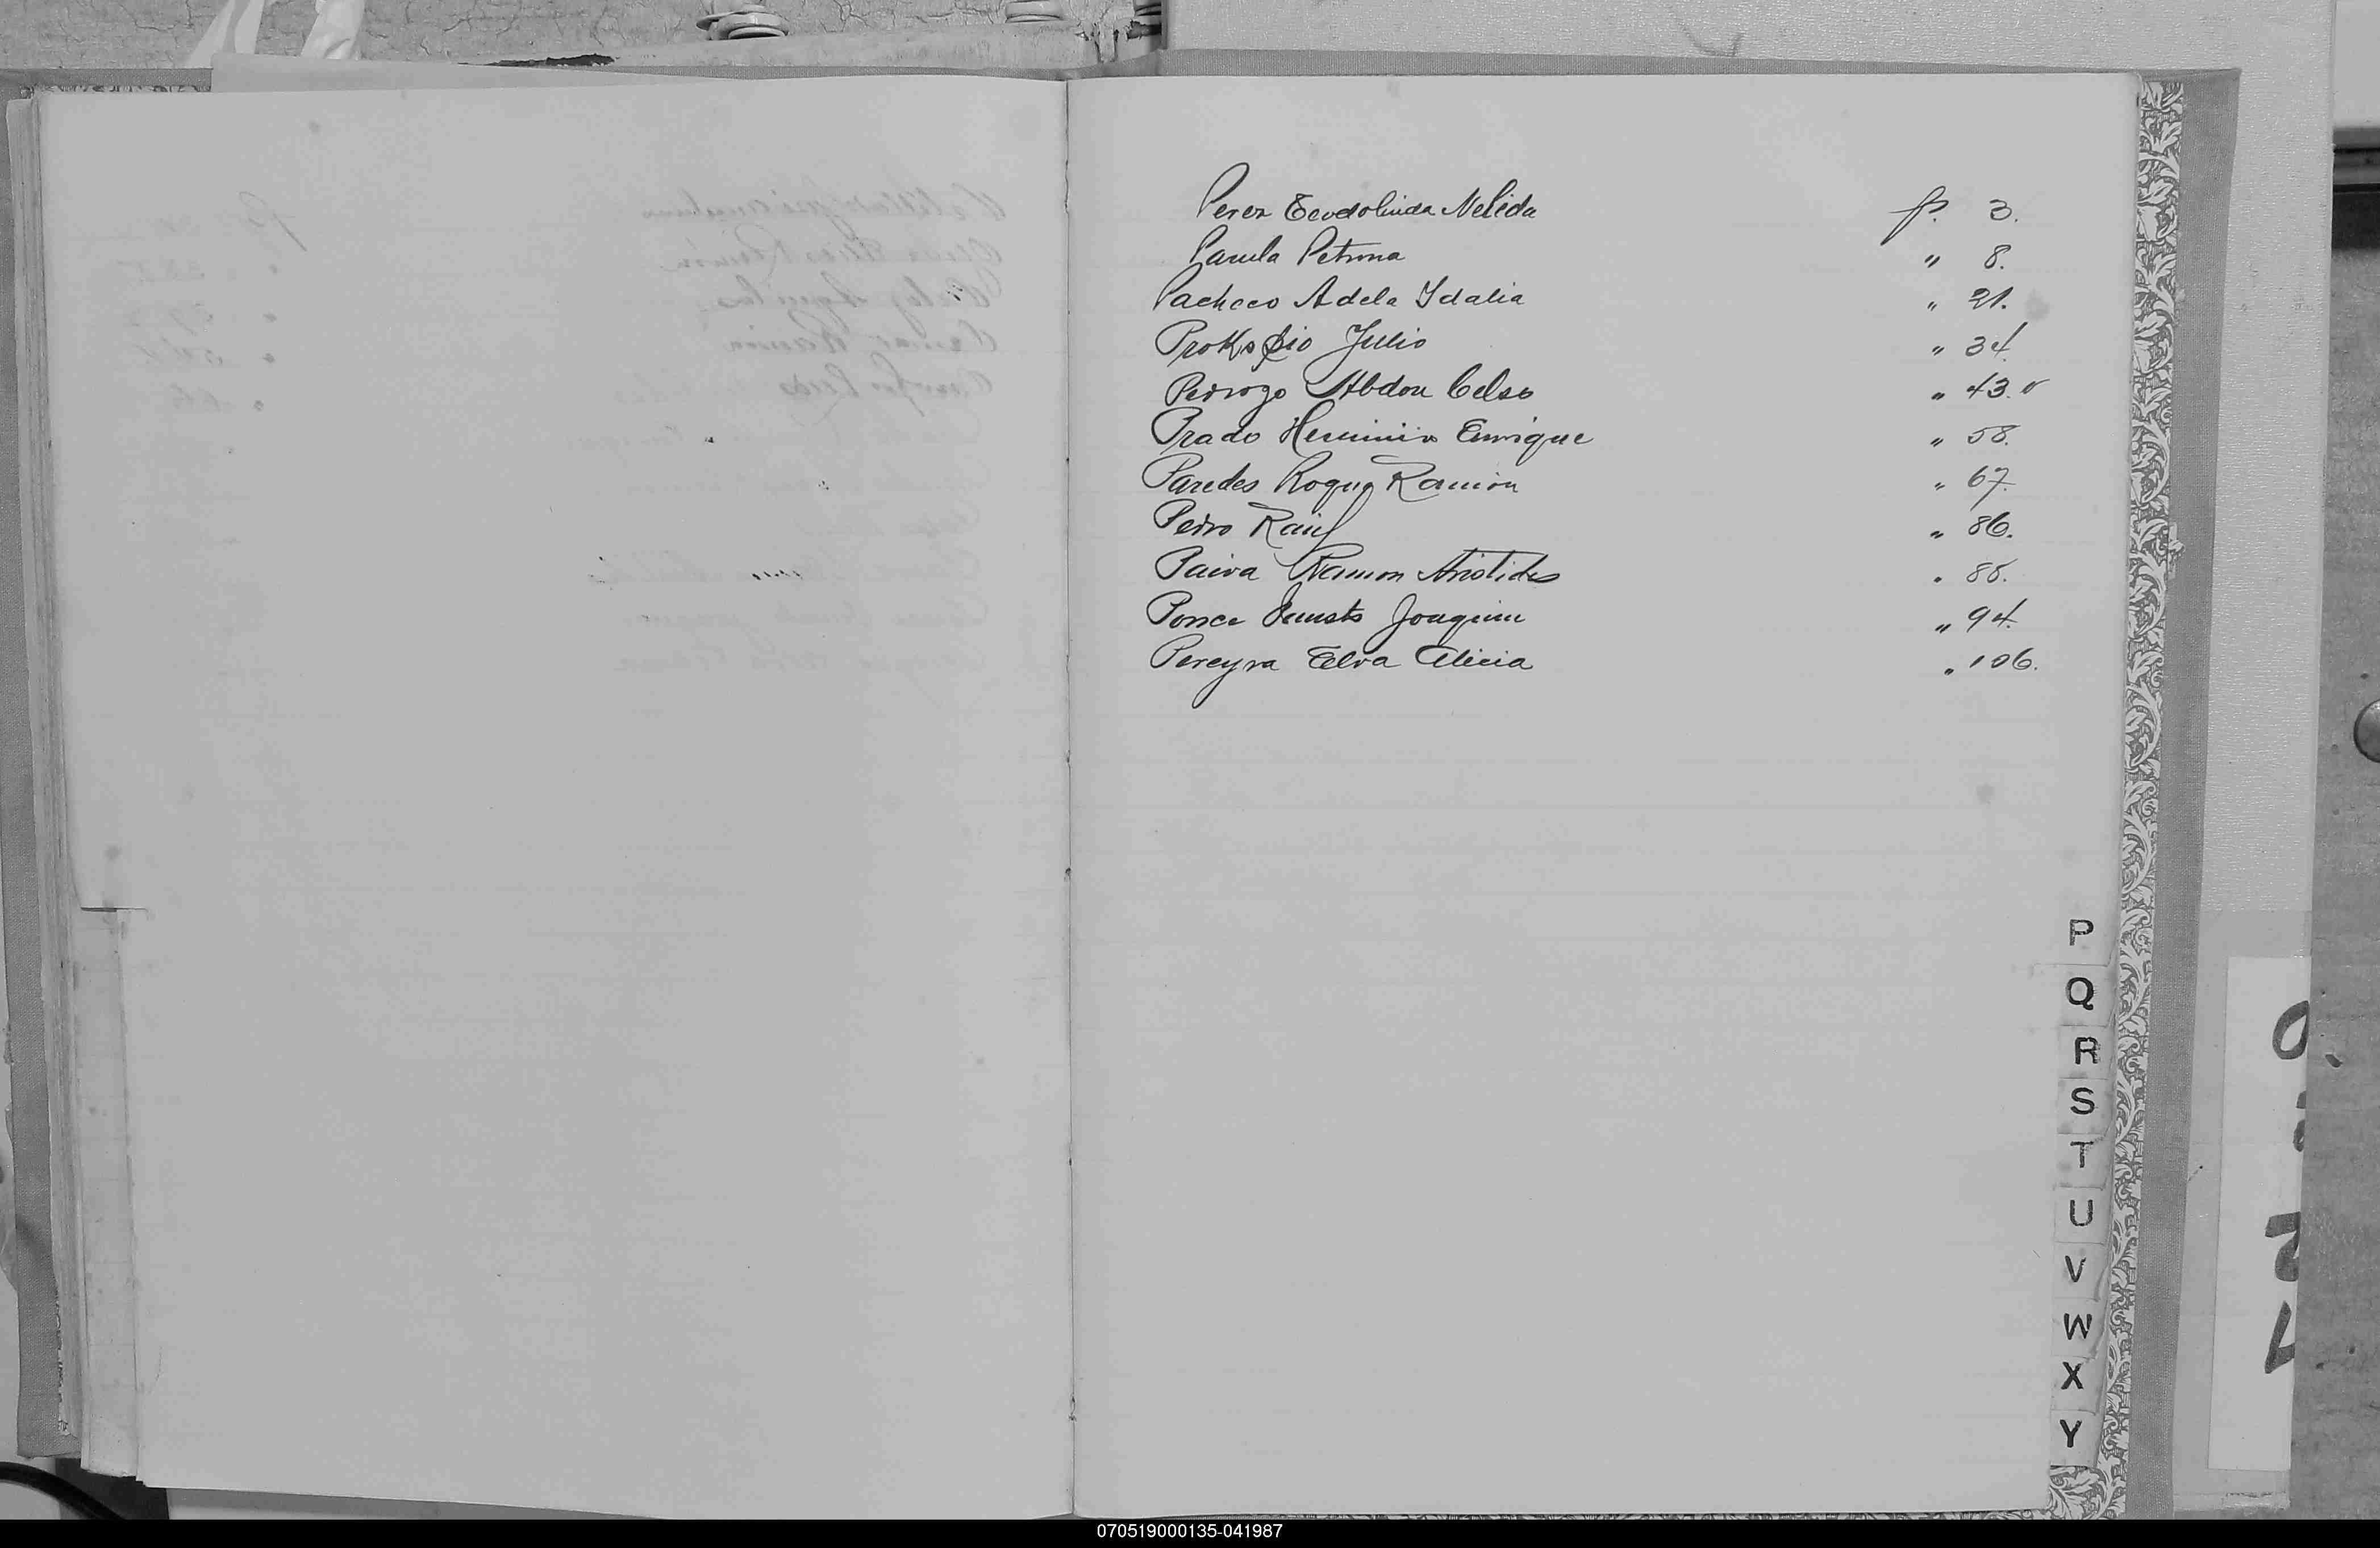 Perez Teodolinda Nelida p. 3.
Parula Petrona " 8.
Pacheco Adela Idalia " 21.
Prokspio Julio " 34.
Pedrozo Abdon Celso " 43.v
Prado Herminio Enrique " 58.
Paredes Roque Ramón " 67.
Pedro Raúl " 86.
Paiva Ramon Aristides " 88.
Ponce Fausto Joaquin " 94.
Pereyra Elva Alicia " 106.
P
Q
R
S
T
U
V
W
X
Y
070519000135-041987